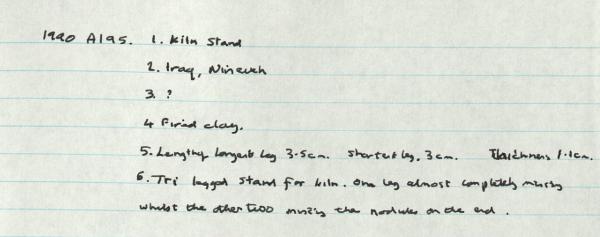 1990 A195. 1. Kiln Stand
2. Iraq, Nineveh
3. ?
4 Fired clay.
5. Length, longest leg 3.5cm. Shortest leg, 3cm. Thickness 1.1cm.
6. Tri legged Stand for kiln. One leg almost completely missing
whilst the other two missing the nodules on the end.